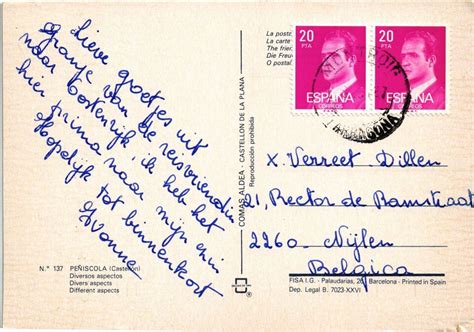 Lieve groetjes uit
Spanje van de reisvriendin
naar Oostenrijk ik heb het
hier prima naar mijn zin
Hopelijk tot binnenkort
Yvonne
N.º 137 PEÑISCOLA (Castellón)
Diversos aspectos
Divers aspects
Different aspects
COMAS ALDEA - CASTELLON DE LA PLANA
Reproducción prohibida
La
La carte
The
Die
O postal
20 PTA
ESPAÑA
CORREOS
20 PTA
ESPAÑA
CORREOS
TARRAGONA
X. Verreet Dillen
Rector de Ramstraat
2260 Nijlen
Belgica
FISA I.G. - Palaudarias, 26 - Barcelona - Printed in Spain
Dep. Legal B. 7023-XXVI